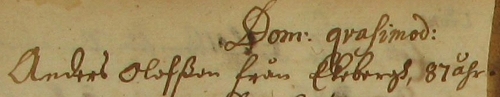 Dom: qvasimod:
Anders Olofsson från Ekebergh, 87 åhr.